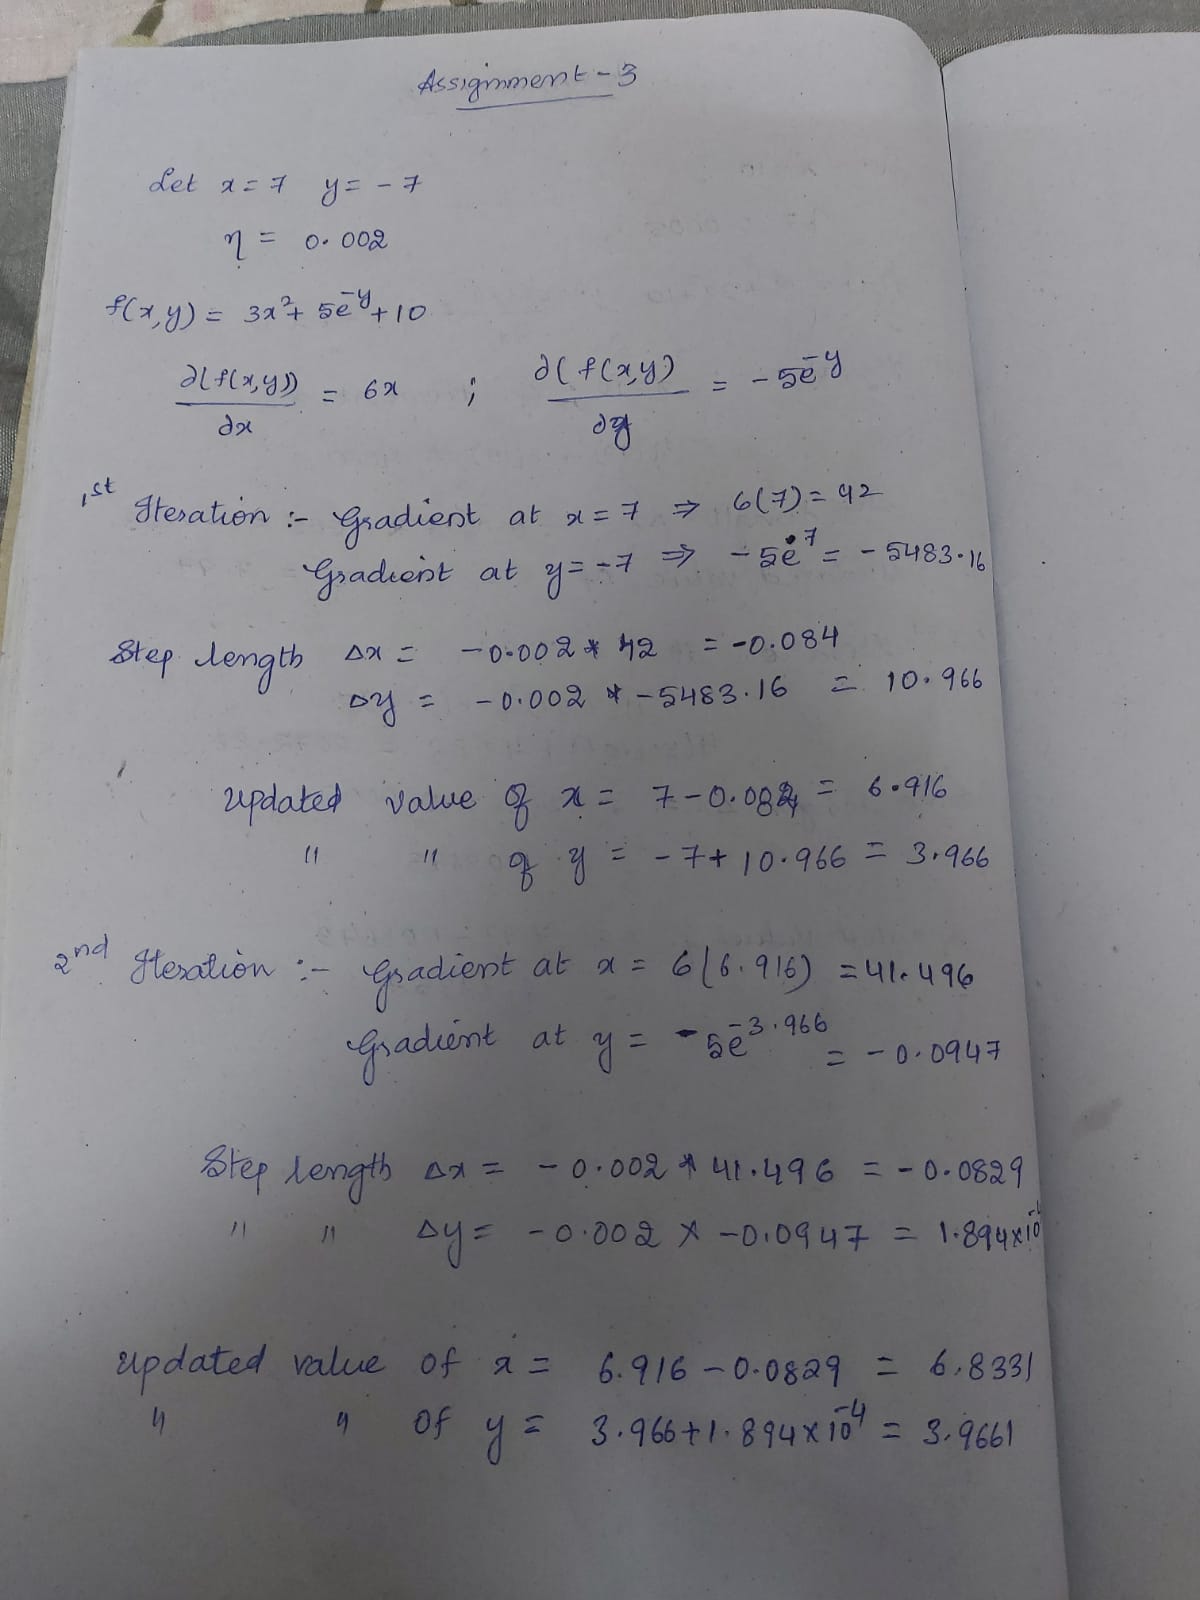 Assignment - 3
Let x = 7 y = - 7
η = 0.002
f(x,y) = 3x² + 5e⁻ʸ + 10
∂(f(x,y))/∂x = 6x ; ∂(f(x,y)/∂y = - 5e⁻ʸ
1st Iteration :- Gradient at x = 7 ⇒ 6(7) = 42
Gradient at y = -7 ⇒ - 5e⁷ = - 5483.16
Step length Δx = -0.002 * 42 = -0.084
Δy = -0.002 * -5483.16 = 10.966
updated value of x = 7-0.084 = 6.916
" " of y = -7+10.966 = 3.966
2nd Iteration :- Gradient at x = 6(6.916) = 41.496
Gradient at y = - 5e^-3.966 = -0.0947
Step length Δx = -0.002 * 41.496 = -0.0829
" " Δy = -0.002 × -0.0947 = 1.894×10
updated value of x = 6.916 - 0.0829 = 6.8331
" " of y = 3.966+1.894×10⁻⁴ = 3.9661